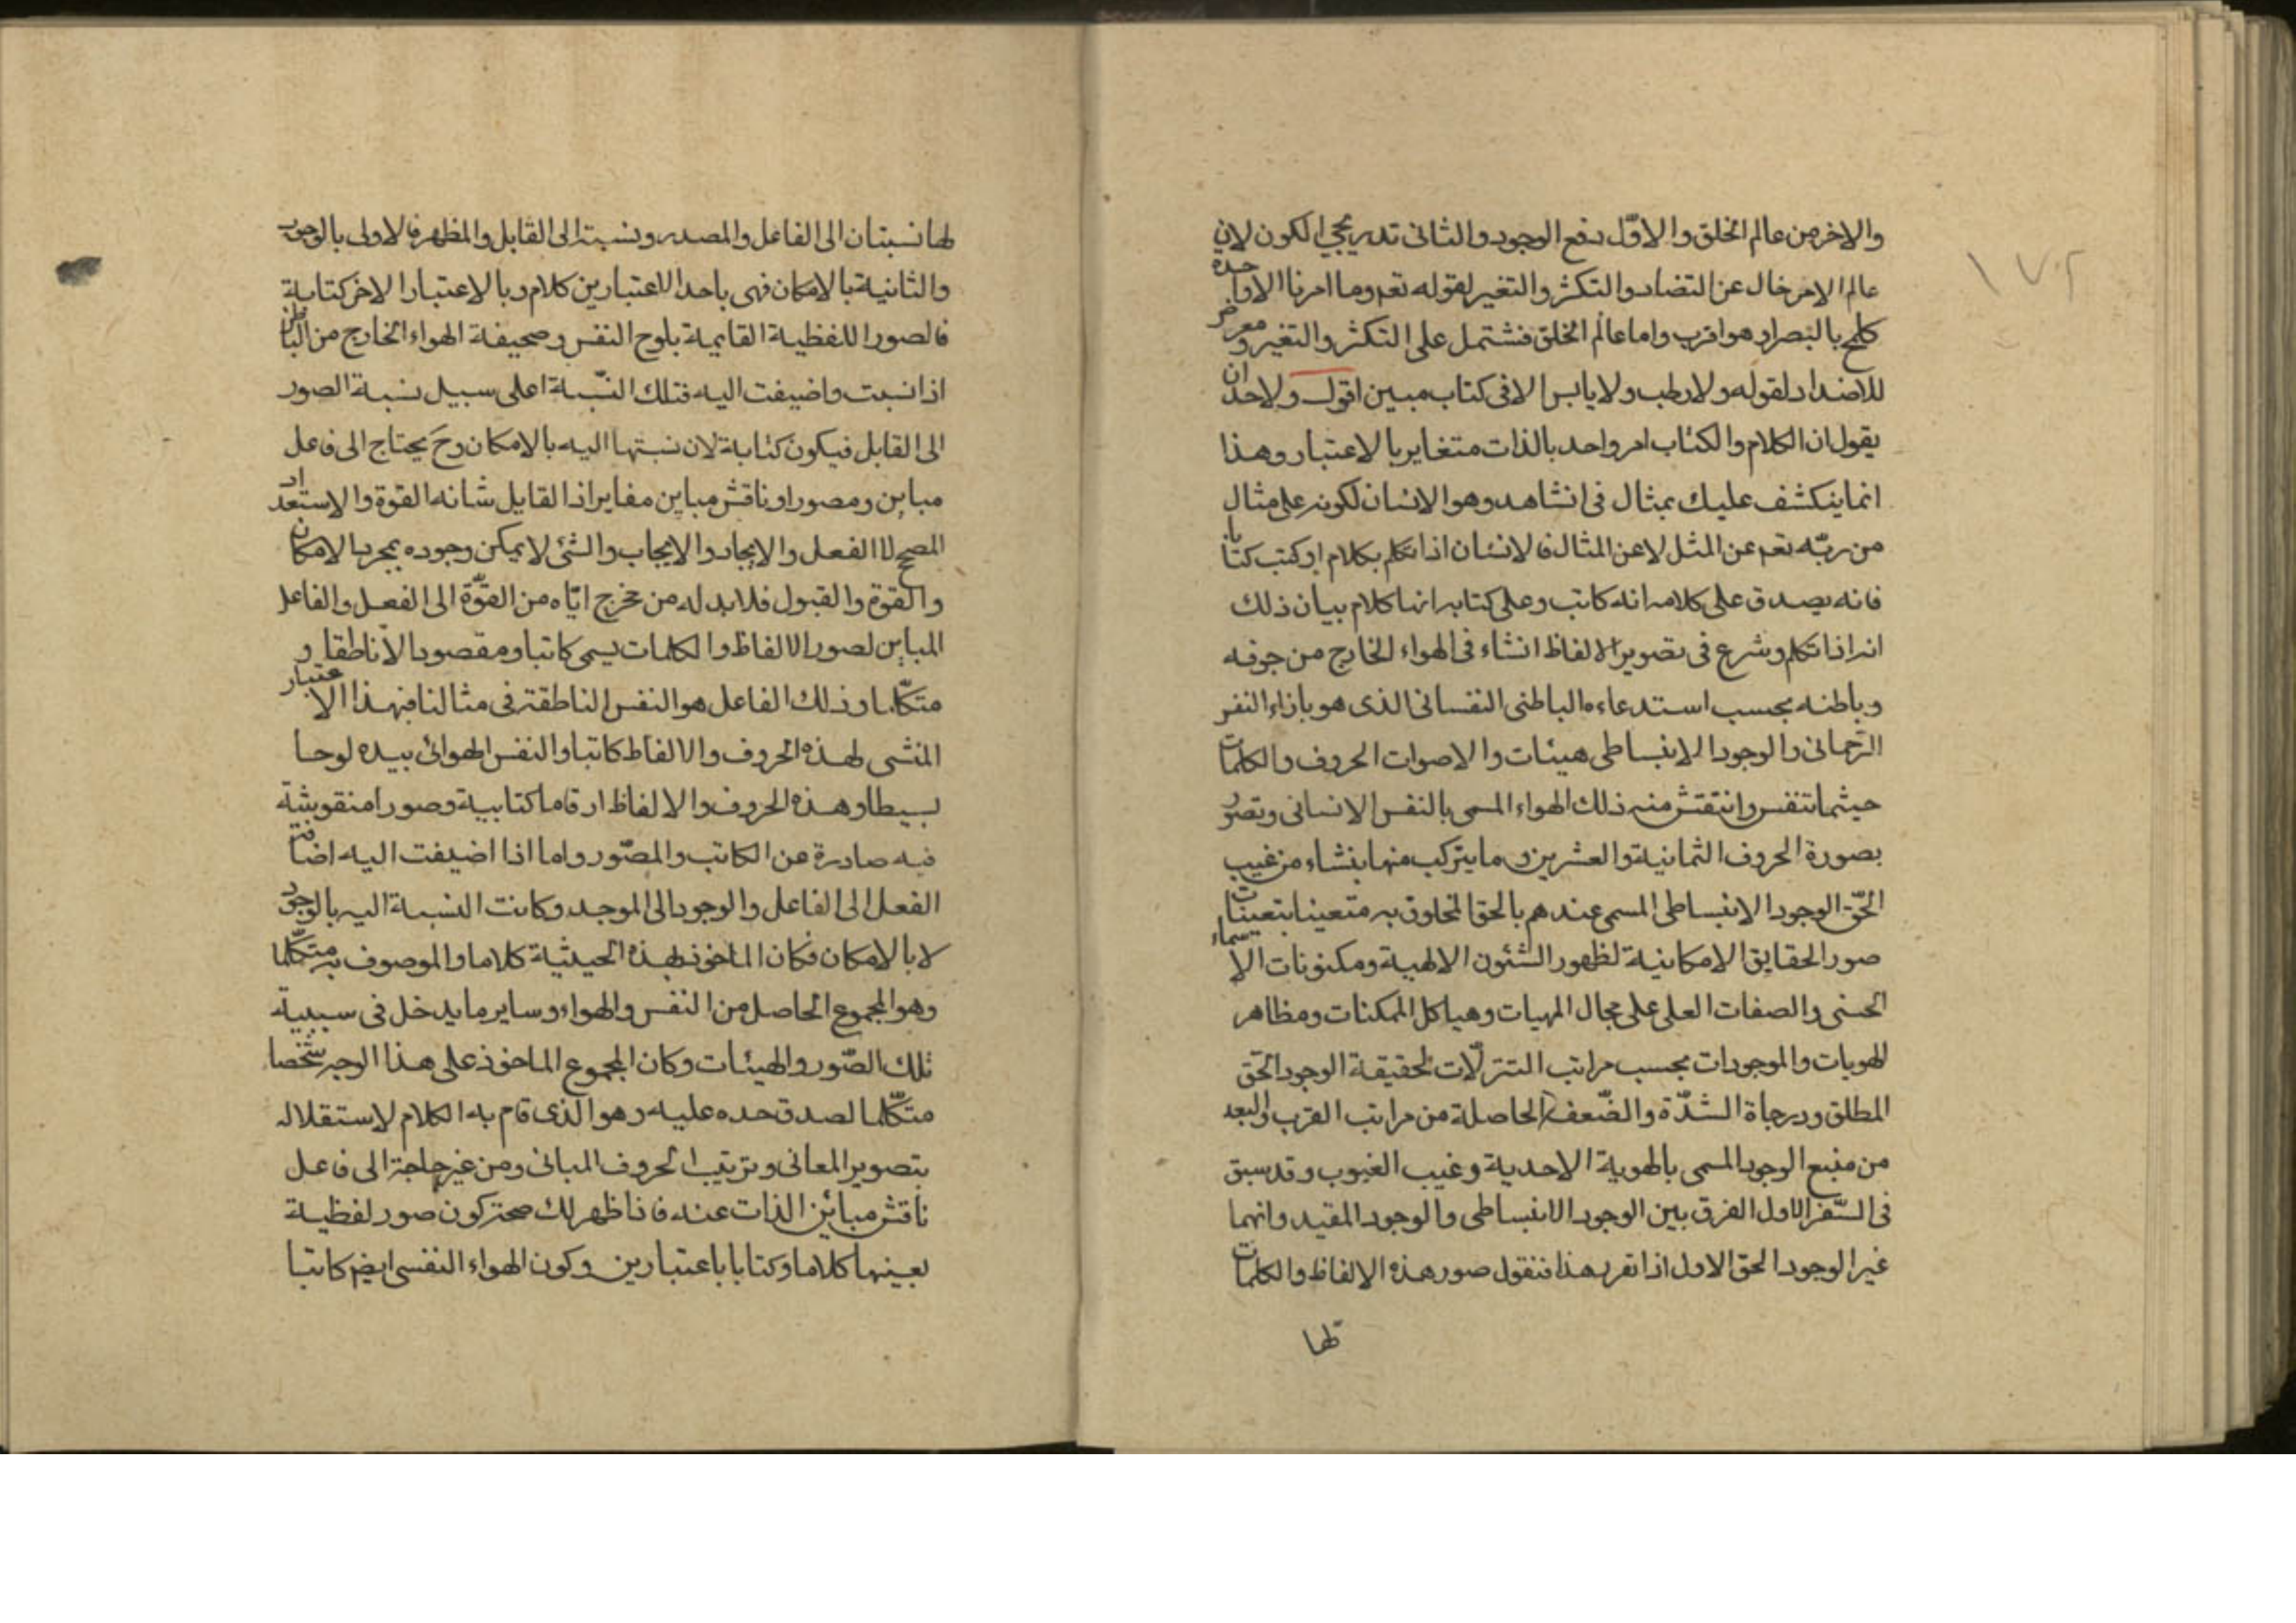 والاخر من عالم الخلق والاوّل دفع الوجود والثانى تدريجي الكون لان
عالم الامر خال عن التضاد والتكثر والتغير لقوله تعم وما امرنا الا واحدة
كلمح بالبصر او هو اقرب واما عالم الخلق فشتمل على التكثر والتغير ومعرض
للاضداد لقوله ولا رطب ولا يابس الا فى كتاب مبين اقول ولاحد ان
يقول ان الكلام والكتاب امر واحد بالذات متغاير بالاعتبار وهذا
انما ينكشف عليك بمثال فى الشاهد وهو الانسان لكونه على مثال
من ربّه تعم عن المثل لا عن المثال فالانسان اذا تكلم بكلام او كتب كتابا
فانه يصدق على كلامه انه كاتب وعلى كتابه انها كلام بيان ذلك
انه اذا تكلم وشرع فى تصوير الالفاظ انشاء فى الهواء الخارج من جوفه
وباطنه بحسب استدعاءه الباطنى النفسانى الذى هو بازاء النفس
الرّحمانى والوجود الانبساطى هيئات والاصوات الحروف والكلمات
حيثما تنفس وانتقش منه ذلك الهواء المسمى بالنفس الانسانى وتصور
بصورة الحروف الثمانية والعشرين وما يتركب منها ينشاء من غيب
الحّق الوجود الانبساطى المسمى عندهم بالحق المخلوق به متعينا بتعينات
صور الحقايق الامكانية لظهور الشئون الالهية ومكنونات الاسماء
الحسنى والصفات العلى على مجال المهيات وهياكل الممكنات ومظاهر
الهويات والموجودات بحسب مراتب التنزّلات لحقيقة الوجود الحّق
المطلق ودرجاة الشدّة والضّعف الحاصلة من مراتب القرب والبعد
من منبع الوجود المسمى بالهوية الاحدية وغيب الغيوب وقد سبق
فى السّفر الاول الفرق بين الوجود الانبساطى والوجود المقيد وانهما
غير الوجود الحق الاول اذا تقرر هذا فنقول صور هذه الالفاظ والكلمات
لها
١٧٢
لها نسبتان الى الفاعل والمصدر ونسبة الى القابل والمظهر فالاولى بالوجوب
والثانية بالامكان فهى باحد الاعتبارين كلام وبالاعتبار الاخر كتابة
فالصور اللفظية القايمة بلوح النفس وصحيفة الهواء الخارج من الباطن
اذا نسبت واضيفت اليه فتلك النّسبة اعلى سبيل نسبة الصور
الى القابل فيكون كتابة لان نسبتها اليه بالامكان وحَ يحتاج الى فاعل
مباين ومصور او ناقش مباين مغاير اذ القابل شانه القوة والاستعداد
المصحح لا الفعل والايجاد والايجاب والشئ لا يمكن وجوده بمجرد الامكان
والقوة والقبول فلابد له من مخرج ايّاه من القوّة الى الفعل والفاعل
المباين لصور الالفاظ والكلمات يسمى كاتبا ومقصودا لا ناطقا و
متكلّما وذلك الفاعل هو النفس الناطقة فى مثالنا فبهذا الاعتبار
المنشى لهذه الحروف والالفاظ كاتبا والنفس الهوائى بيده لوحا
بسيطا وهذه الحروف والالفاظ ارقاما كتابية وصورا منقوشة
فيه صادرة عن الكاتب والمصّور واما اذا اضيفت اليه اضافة
الفعل الى الفاعل والوجود الى الموجد وكانت النسبة اليه بالوجوب
لا بالامكان فكان الماخوذ بهذه الحيثية كلاما والموصوف به متكلّما
وهو المجموع الحاصل من النفس والهواء وساير ما يدخل فى سببية
تلك الصّور والهيئات وكان المجموع الماخوذ على هذا الوجه شخصا
متكلّما لصدق حده عليه وهو الذى قام به الكلام لاستقلاله
بتصوير المعانى وترتيب الحروف المبانى ومن غير حاجة الى فاعل
ناقش مبائن الذات عنه فاذا ظهر لك صحة كون صور لفظية
بعينها كلاما وكتابا باعتبارين وكون الهواء النفسى ايضم كاتبا